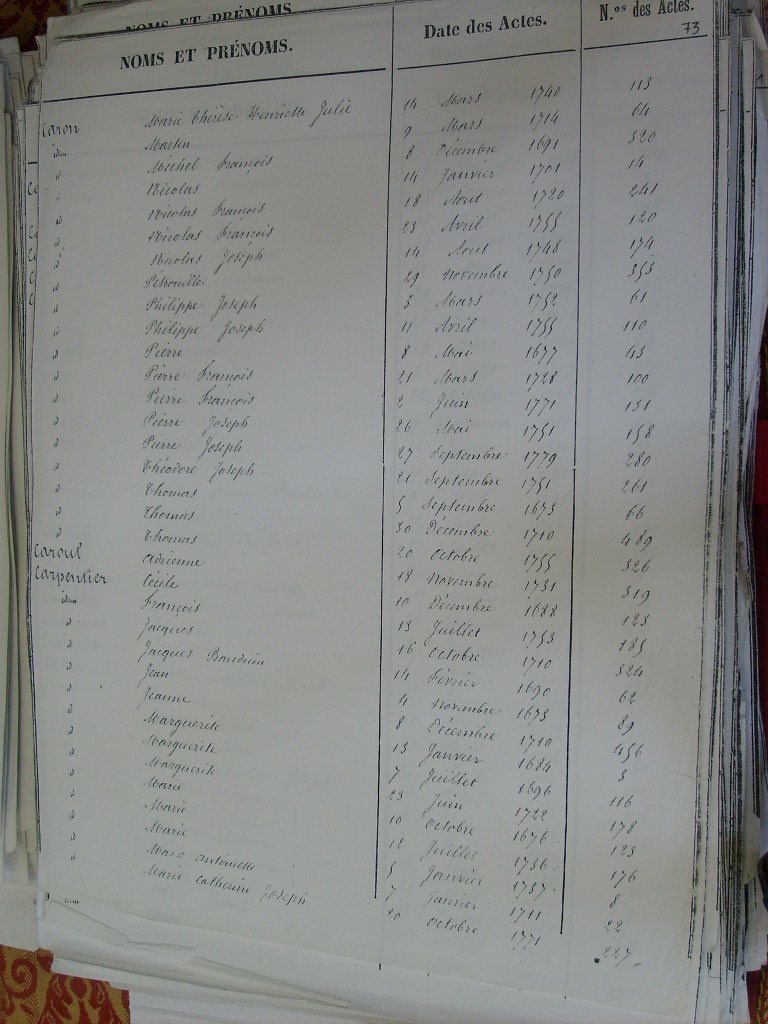 NOMS ET PRÉNOMS.
NOMS ET PRÉNOMS. Date des Actes. N.os des Actes.
73
Caron Marie Thérèse Henriette Julie 14 Mars 1740 113
idem Martin 9 Mars 1714 64
d Michel François 8 Décembre 1691 320
d Nicolas 14 Janvier 1701 14
d Nicolas François 18 Aout 1720 241
d Nicolas François 23 Avril 1755 120
d Nicolas Joseph 14 Aout 1748 174
d Pétronille 29 novembre 1750 353
d Philippe Joseph 3 Mars 1752 61
d Philippe Joseph 11 Avril 1755 110
d Pierre 8 Mai 1677 43
d Pierre François 21 Mars 1728 100
d Pierre François 2 Juin 1771 131
d Pierre Joseph 26 Mai 1751 158
d Pierre Joseph 27 Septembre 1779 280
d Théodore Joseph 21 Septembre 1751 261
d Thomas 5 Septembre 1673 66
d Thomas 30 Décembre 1710 489
d Thomas 20 Octobre 1755 326
Caroul Adrienne 18 novembre 1731 319
Carpentier Cécile 10 Décembre 1688 123
idem François 13 Juillet 1753 185
d Jacques 16 Octobre 1710 324
d Jacques Baudouin 14 Février 1690 62
d Jean 4 novembre 1673 89
d Jeanne 8 Décembre 1710 456
d Marguerite 13 Janvier 1684 3
d Marguerite 7 Juillet 1696 116
d Marguerite 23 Juin 1722 178
d Marie 10 Octobre 1676 123
d Marie 12 Juillet 1736 176
d Marie 5 Janvier 1737 8
d Marie antoinette 7 Janvier 1711 22
idem Marie Catherine Joseph 20 Octobre 1771 227